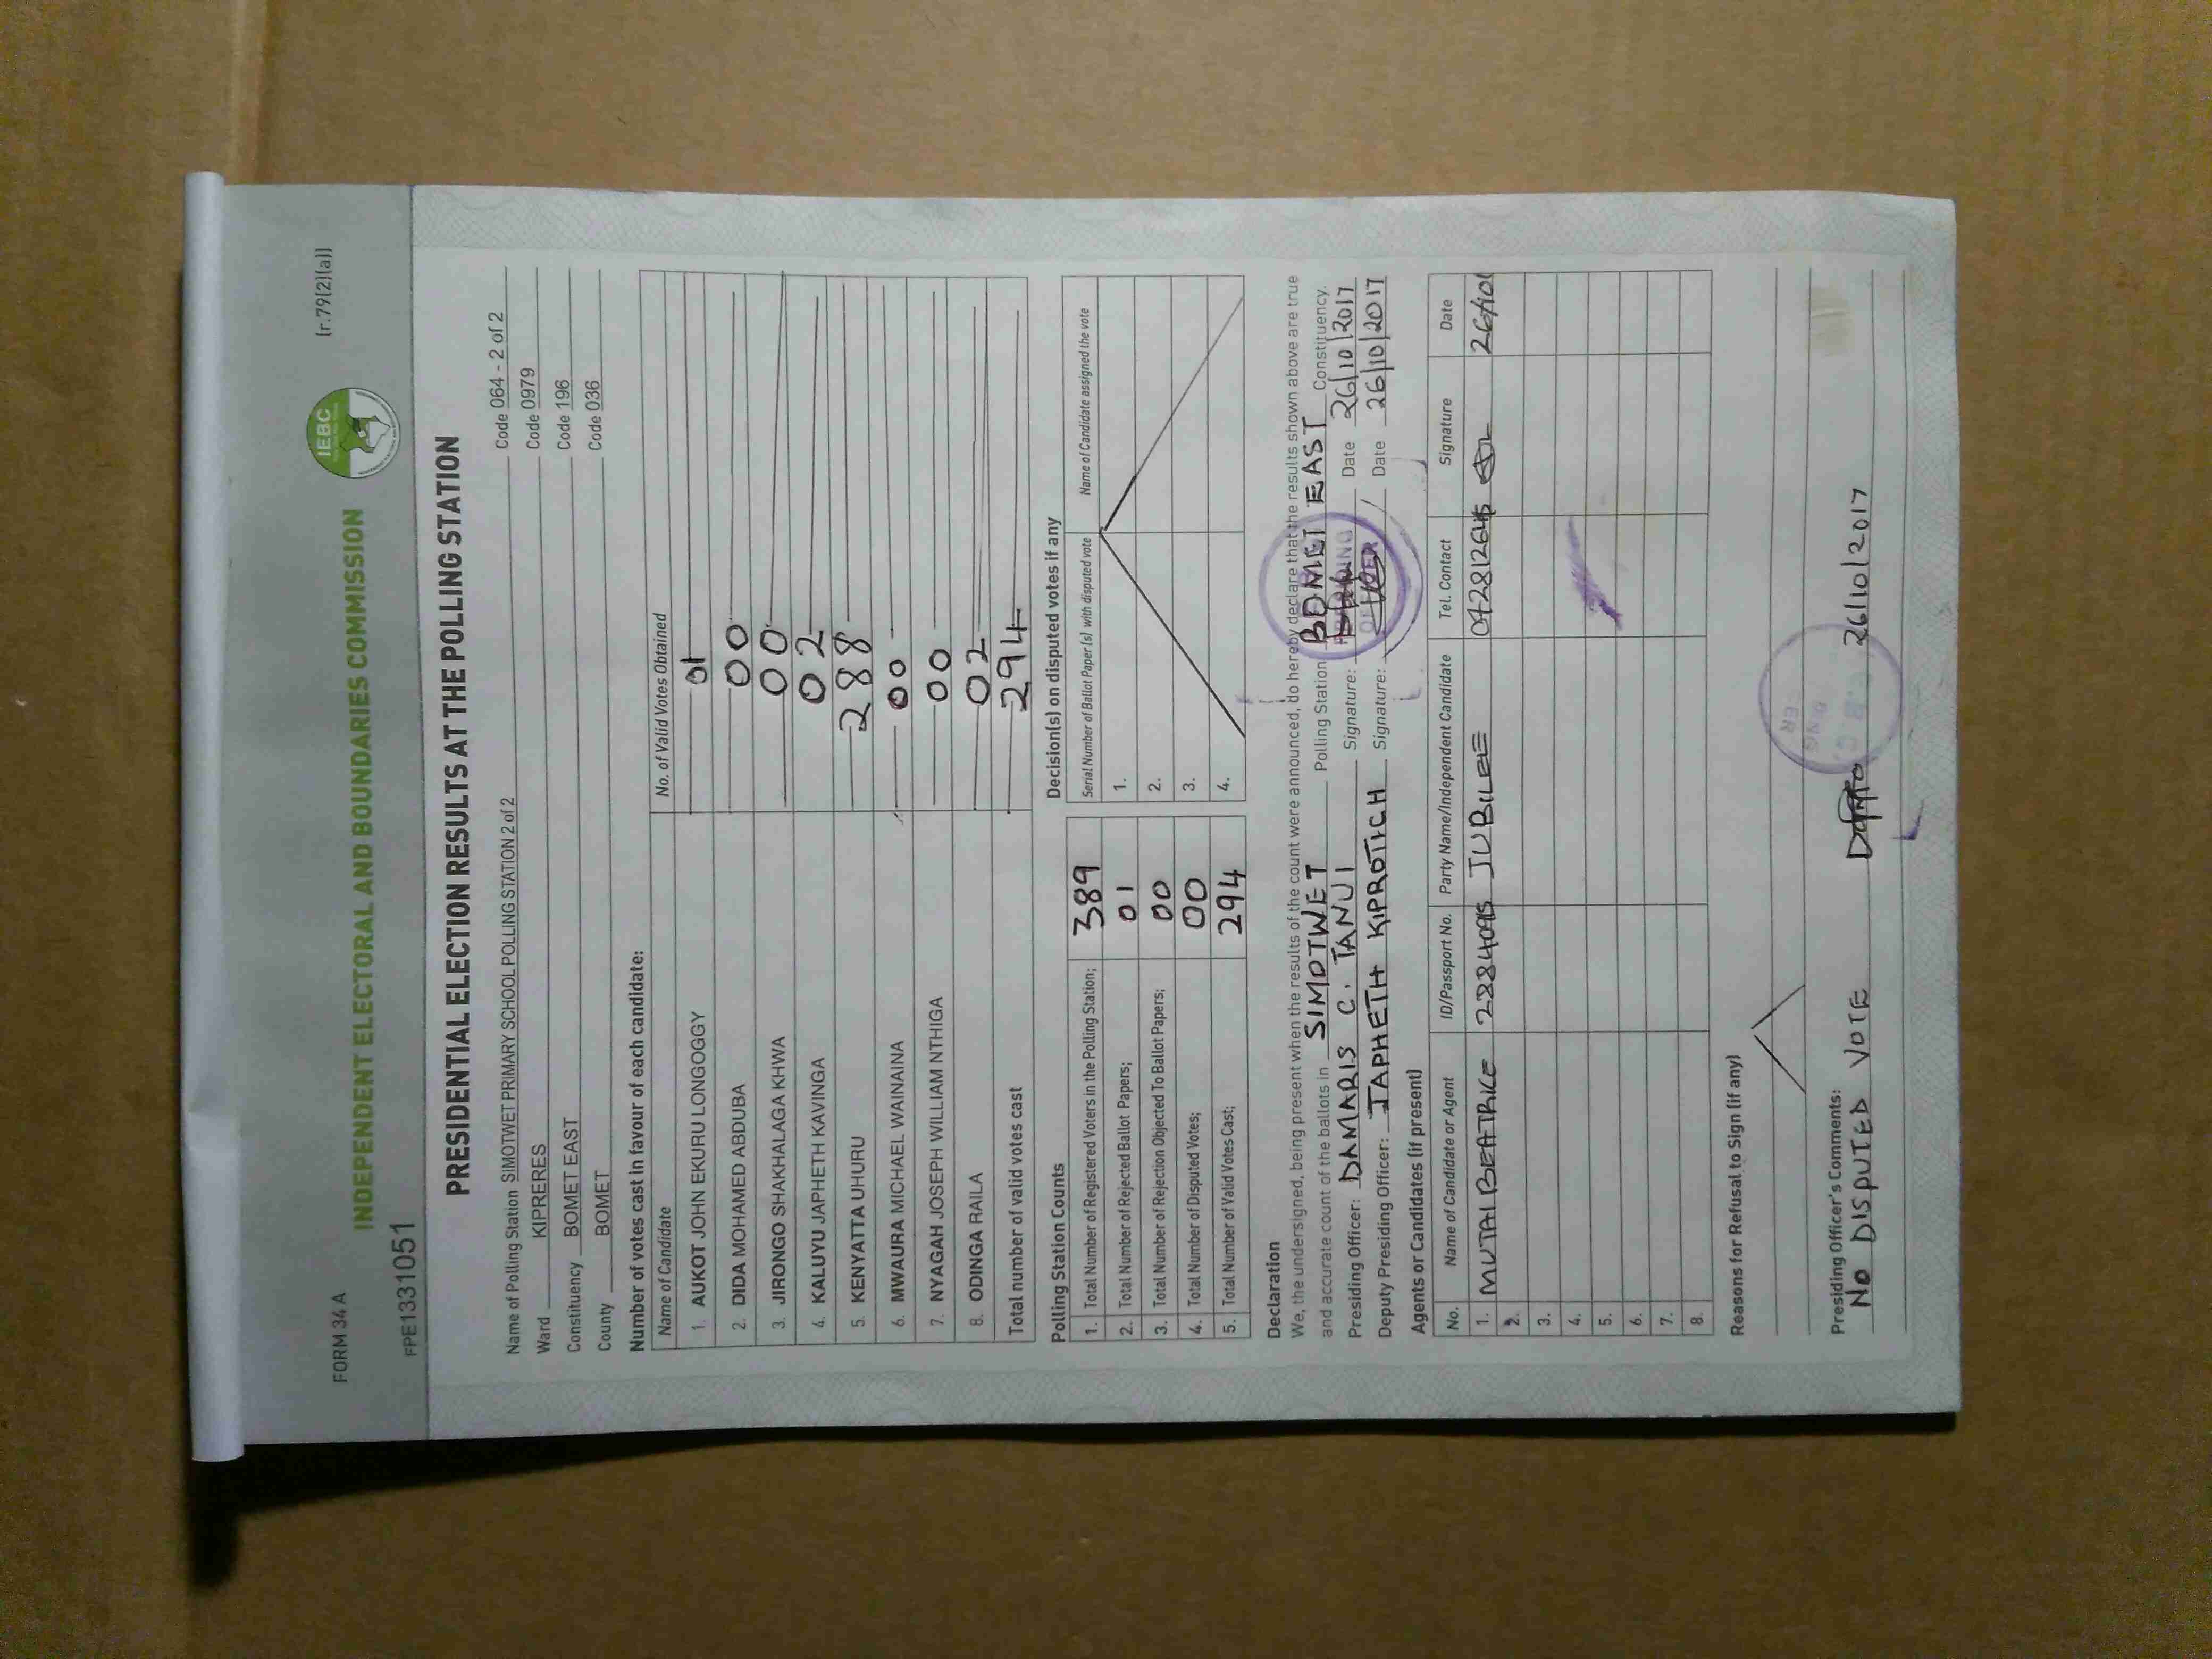 FORM 34 A
(r.79(2)(a))
IEBC
INDEPENDENT ELECTORAL AND BOUNDARIES COMMISSION
FPE1331051
PRESIDENTIAL ELECTION RESULTS AT THE POLLING STATION
Name of Polling Station SIMOTWET PRIMARY SCHOOL POLLING STATION 2 of 2 Code 064 - 2 of 2
Ward KIPRERES Code 0979
Constituency BOMET EAST Code 196
County BOMET Code 036
Number of votes cast in favour of each candidate:
Name of Candidate No. of Valid Votes Obtained
1. AUKOT JOHN EKURU LONGOGGY 01
2. DIDA MOHAMED ABDUBA 00
3. JIRONGO SHAKHALAGA KHWA 00
4. KALUYU JAPHETH KAVINGA 02
5. KENYATTA UHURU 288
6. MWAURA MICHAEL WAINAINA 00
7. NYAGAH JOSEPH WILLIAM NTHIGA 00
8. ODINGA RAILA 02
Total number of valid votes cast 294
Polling Station Counts
1. Total Number of Registered Voters in the Polling Station; 389
2. Total Number of Rejected Ballot Papers; 01
3. Total Number of Rejection Objected To Ballot Papers; 00
4. Total Number of Disputed Votes; 00
5. Total Number of Valid Votes Cast; 294
Decision(s) on disputed votes if any
Serial Number of Ballot Paper (s) with disputed vote Name of Candidate assigned the vote
1.
2.
3.
4.
Declaration
We, the undersigned, being present when the results of the count were announced, do hereby declare that the results shown above are true
and accurate count of the ballots in SIMOTWET Polling Station BOMET EAST Constituency.
Presiding Officer: DAMARIS C. TANUI Signature: Date 26/10/2017
Deputy Presiding Officer: JAPHETH KIPROTICH Signature: Date 26/10/2017
Agents or Candidates (if present)
No. Name of Candidate or Agent ID/Passport No. Party Name/Independent Candidate Tel. Contact Signature Date
1. MUTAI BEATRICE JUBILEE
2.
3.
4.
5.
6.
7.
8.
Reasons for Refusal to Sign (if any)
Presiding Officer's Comments:
NO DISPUTED VOTE 26/10/2017